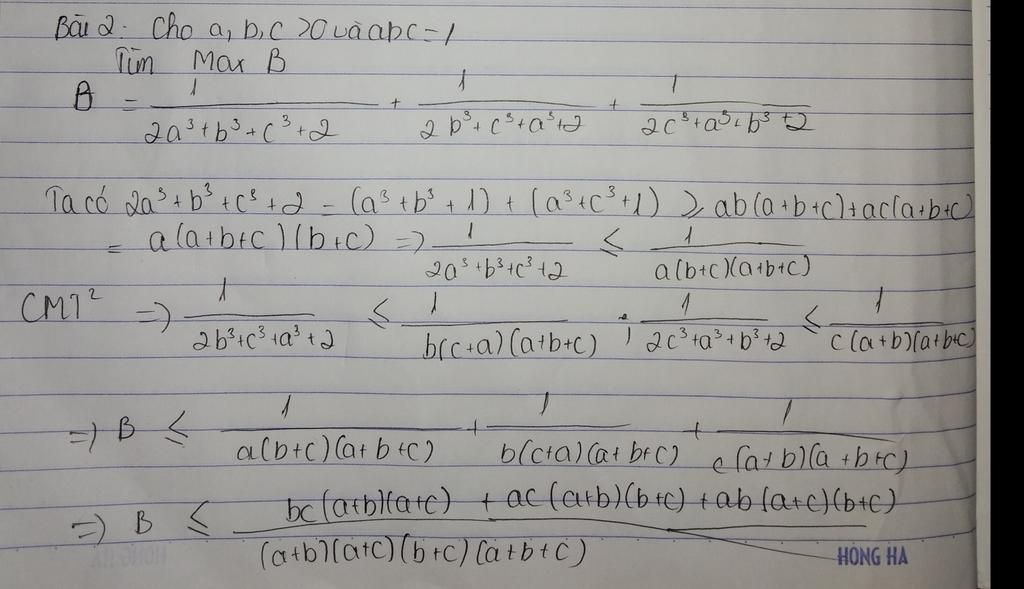 Bài 2: Cho a, b, c >0 và abc = 1
Tìm Max B
B = 1/(2a³+b³+c³+2) + 1/(2b³+c³+a³+2) + 1/(2c³+a³+b³+2)
Ta có 2a³+b³+c³+2 = (a³+b³+1) + (a³+c³+1) ≥ ab(a+b+c)+ac(a+b+c)
= a(a+b+c)(b+c) => 1/(2a³+b³+c³+2) ≤ 1/(a(b+c)(a+b+c))
CMT² => 1/(2b³+c³+a³+2) ≤ 1/(b(c+a)(a+b+c)) ; 1/(2c³+a³+b³+2) ≤ 1/(c(a+b)(a+b+c))
=> B ≤ 1/(a(b+c)(a+b+c)) + 1/(b(c+a)(a+b+c)) + 1/(c(a+b)(a+b+c))
=> B ≤ (bc(a+b)(a+c) + ac(a+b)(b+c) + ab(a+c)(b+c))/((a+b)(a+c)(b+c)(a+b+c))
HONG HA